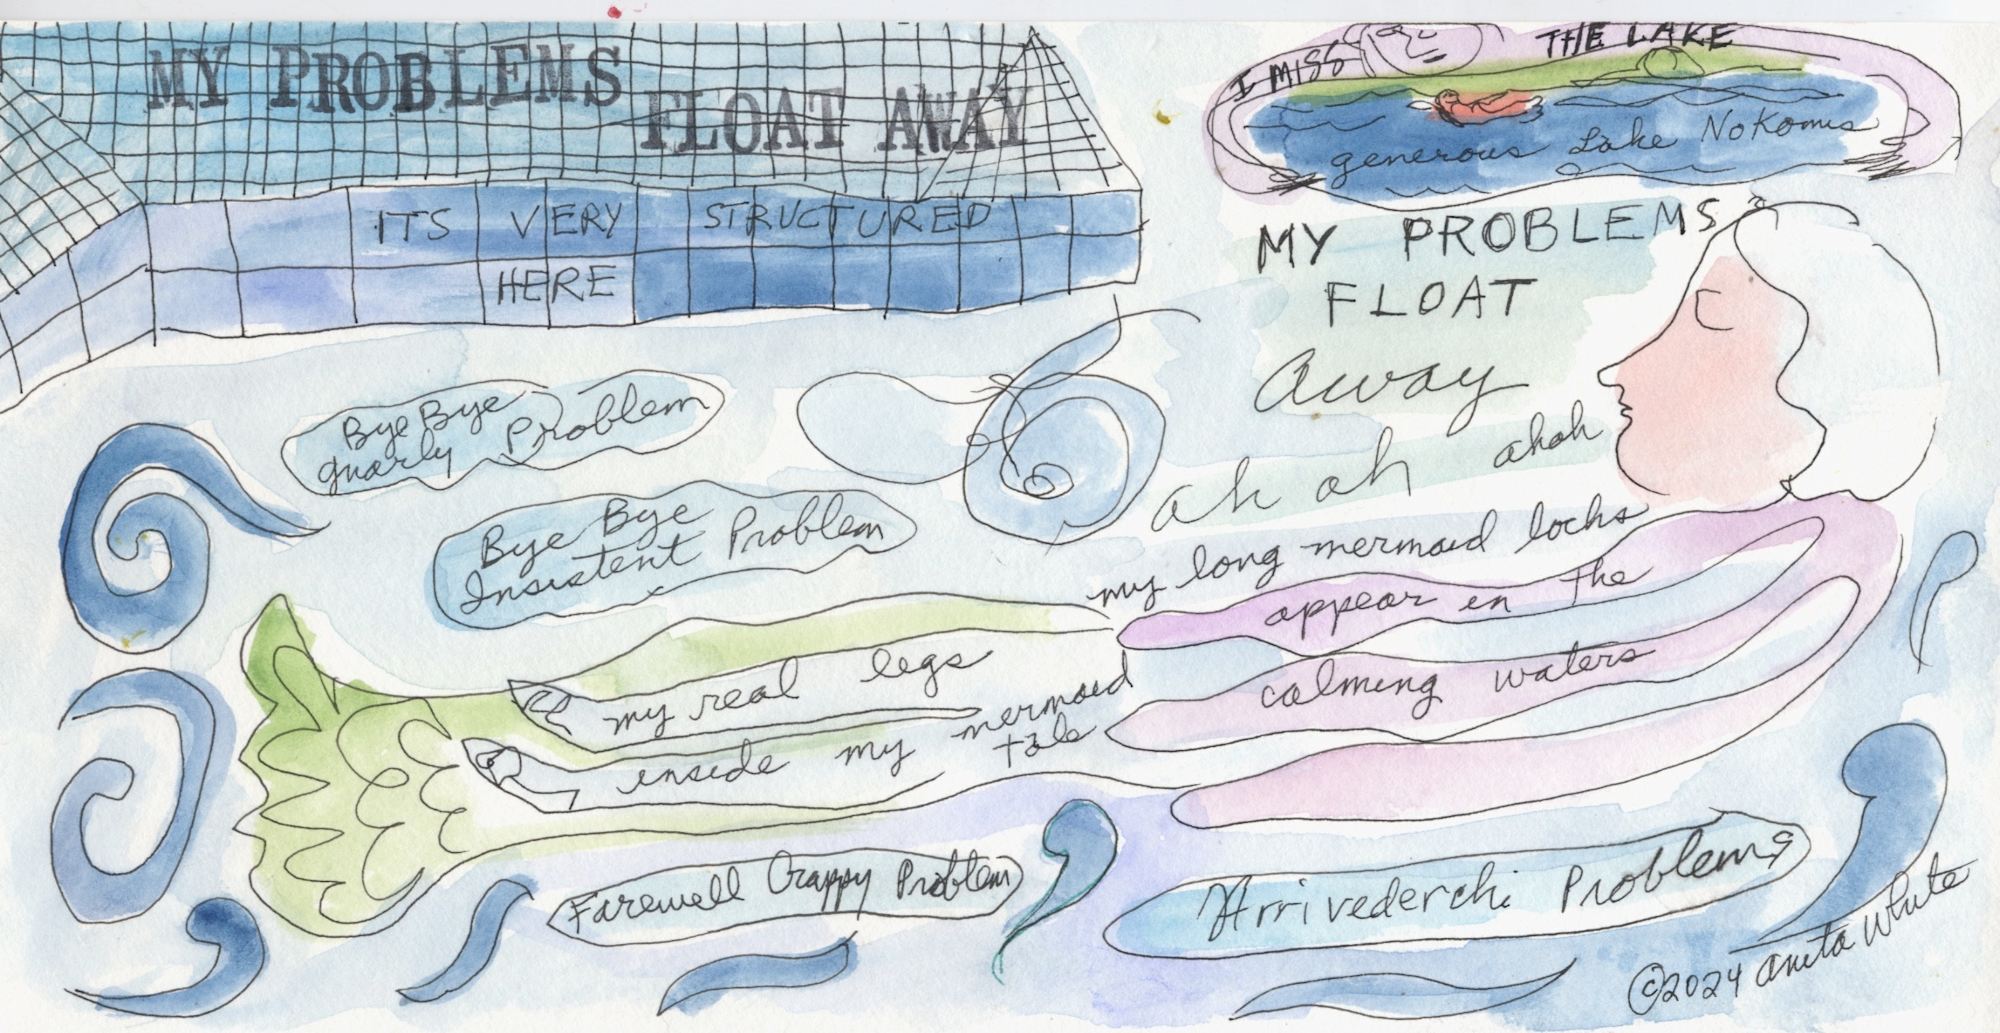 MY PROBLEMS
FLOAT AWAY
ITS VERY STRUCTURED
HERE
I MISS THE LAKE
generous Lake Nokomis
MY PROBLEMS
FLOAT
away
ah ah ahah
my long mermaid locks
appear in the
calming waters
Bye Bye
gnarly Problem
Bye Bye
Insistent Problem
my real legs
inside my mermaid
tale
Farewell Crappy Problem
Arrivederchi Problems
©2024 Anita White